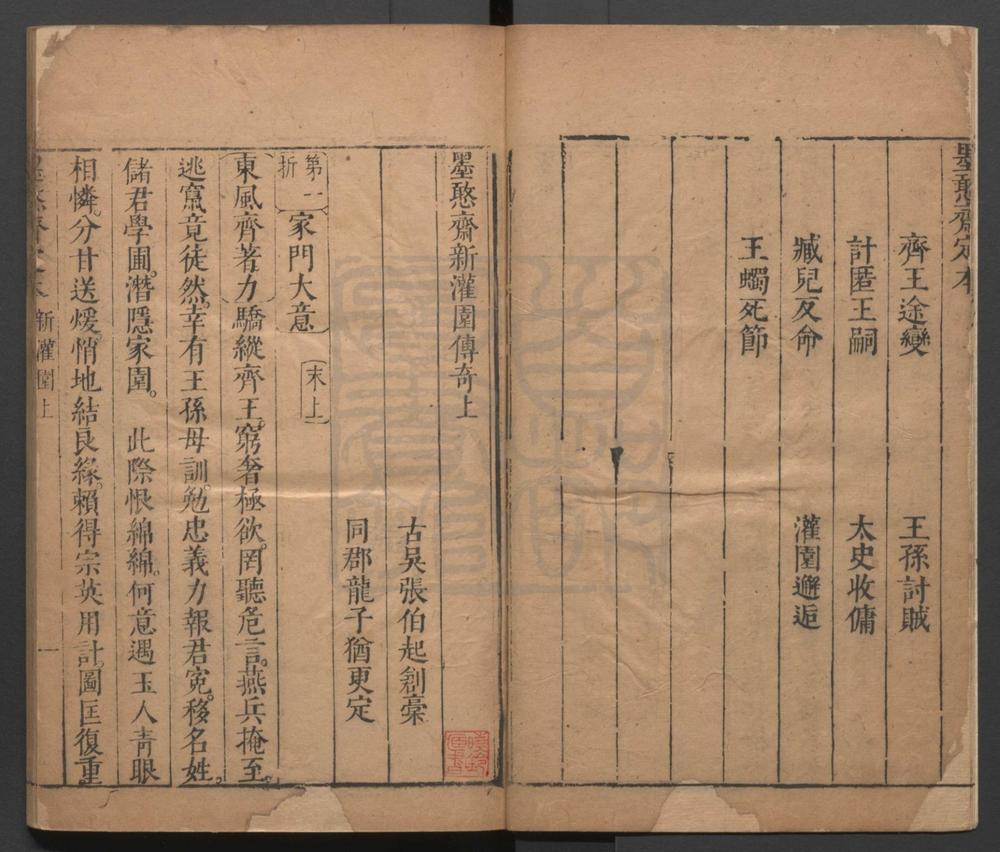 墨憨齋定本
齊王途變 王孫討賊
計匿王嗣 太史收傭
臧兒反命 灌園邂逅
王蠋死節
墨憨齋新灌園傳奇上
古吳張伯起創稾
同郡龍子猶更定
第一折 家門大意 末上
東風齊著力驕縱齊王。窮奢極欲。罔聽危言。燕兵掩至。
逃竄竟徒然。幸有王孫母訓。勉忠義力報君寃。移名姓。
儲君學圃。潛隱家園。 此際恨綿綿。何意遇玉人青眼
相憐。分甘送煖。悄地結良緣。賴得宗英用計。圖匡復重
新灌園上 一